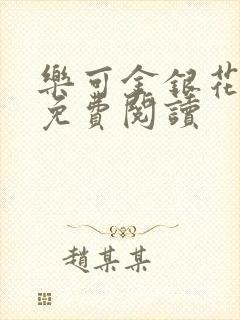 樂可金銀花
免費閱讀
趙某某